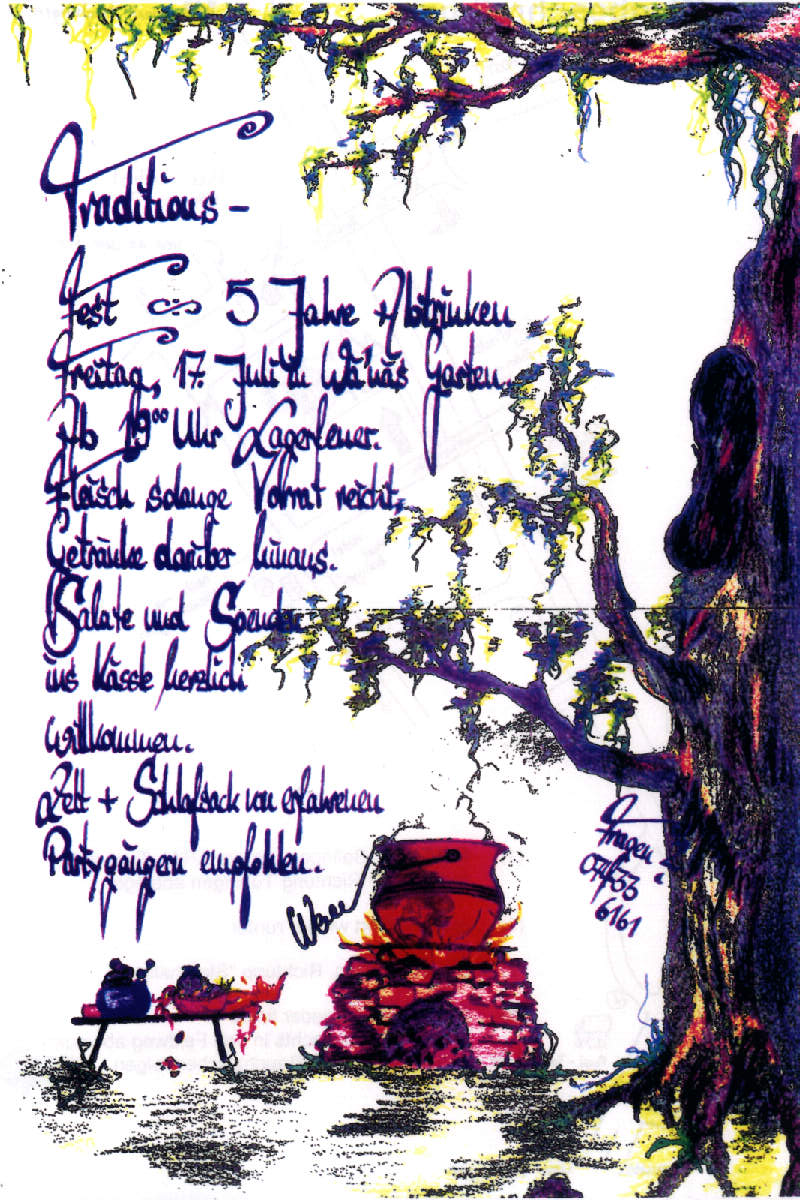 Traditions-
Fest ~ 5 Jahre Abtrinken
Freitag, 17. Juli in Wa'nas Garten.
Ab 19⁰⁰ Uhr Lagerfeuer.
Fleisch solange Vorrat reicht,
Getränke darüber hinaus.
Salate und Spenden
ins Kässle herzlich
willkommen.
Zelt + Schlafsack von erfahrenen
Partygängern empfohlen.
Fragen
6161